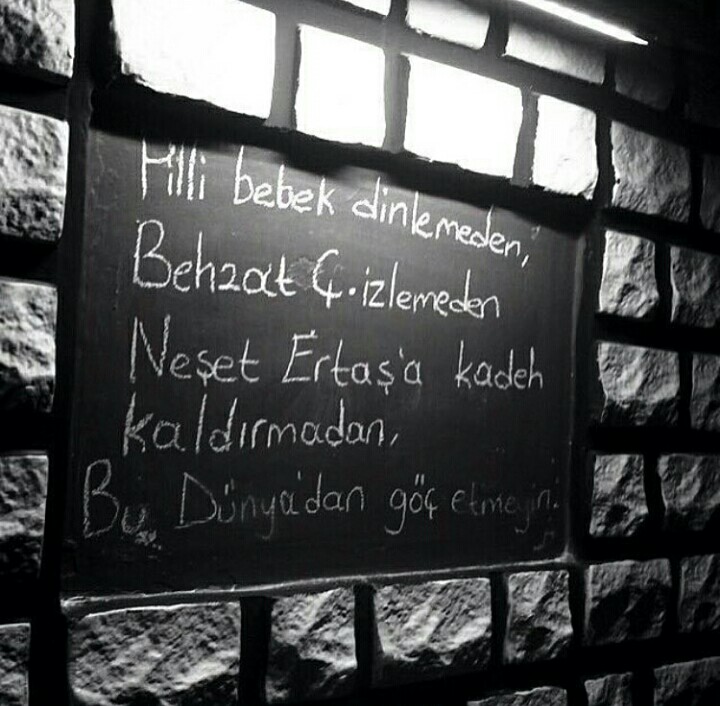 Pilli bebek dinlemeden,
Behzat Ç. izlemeden
Neşet Ertaş'a kadeh
kaldırmadan,
Bu Dünya'dan göç etmeyin.